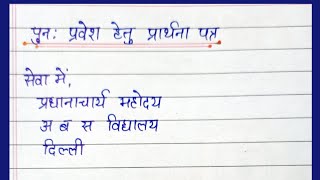 पुनः प्रवेश हेतु प्रार्थना पत्र
सेवा में,
प्रधानाचार्य महोदय
अ ब स विद्यालय
दिल्ली